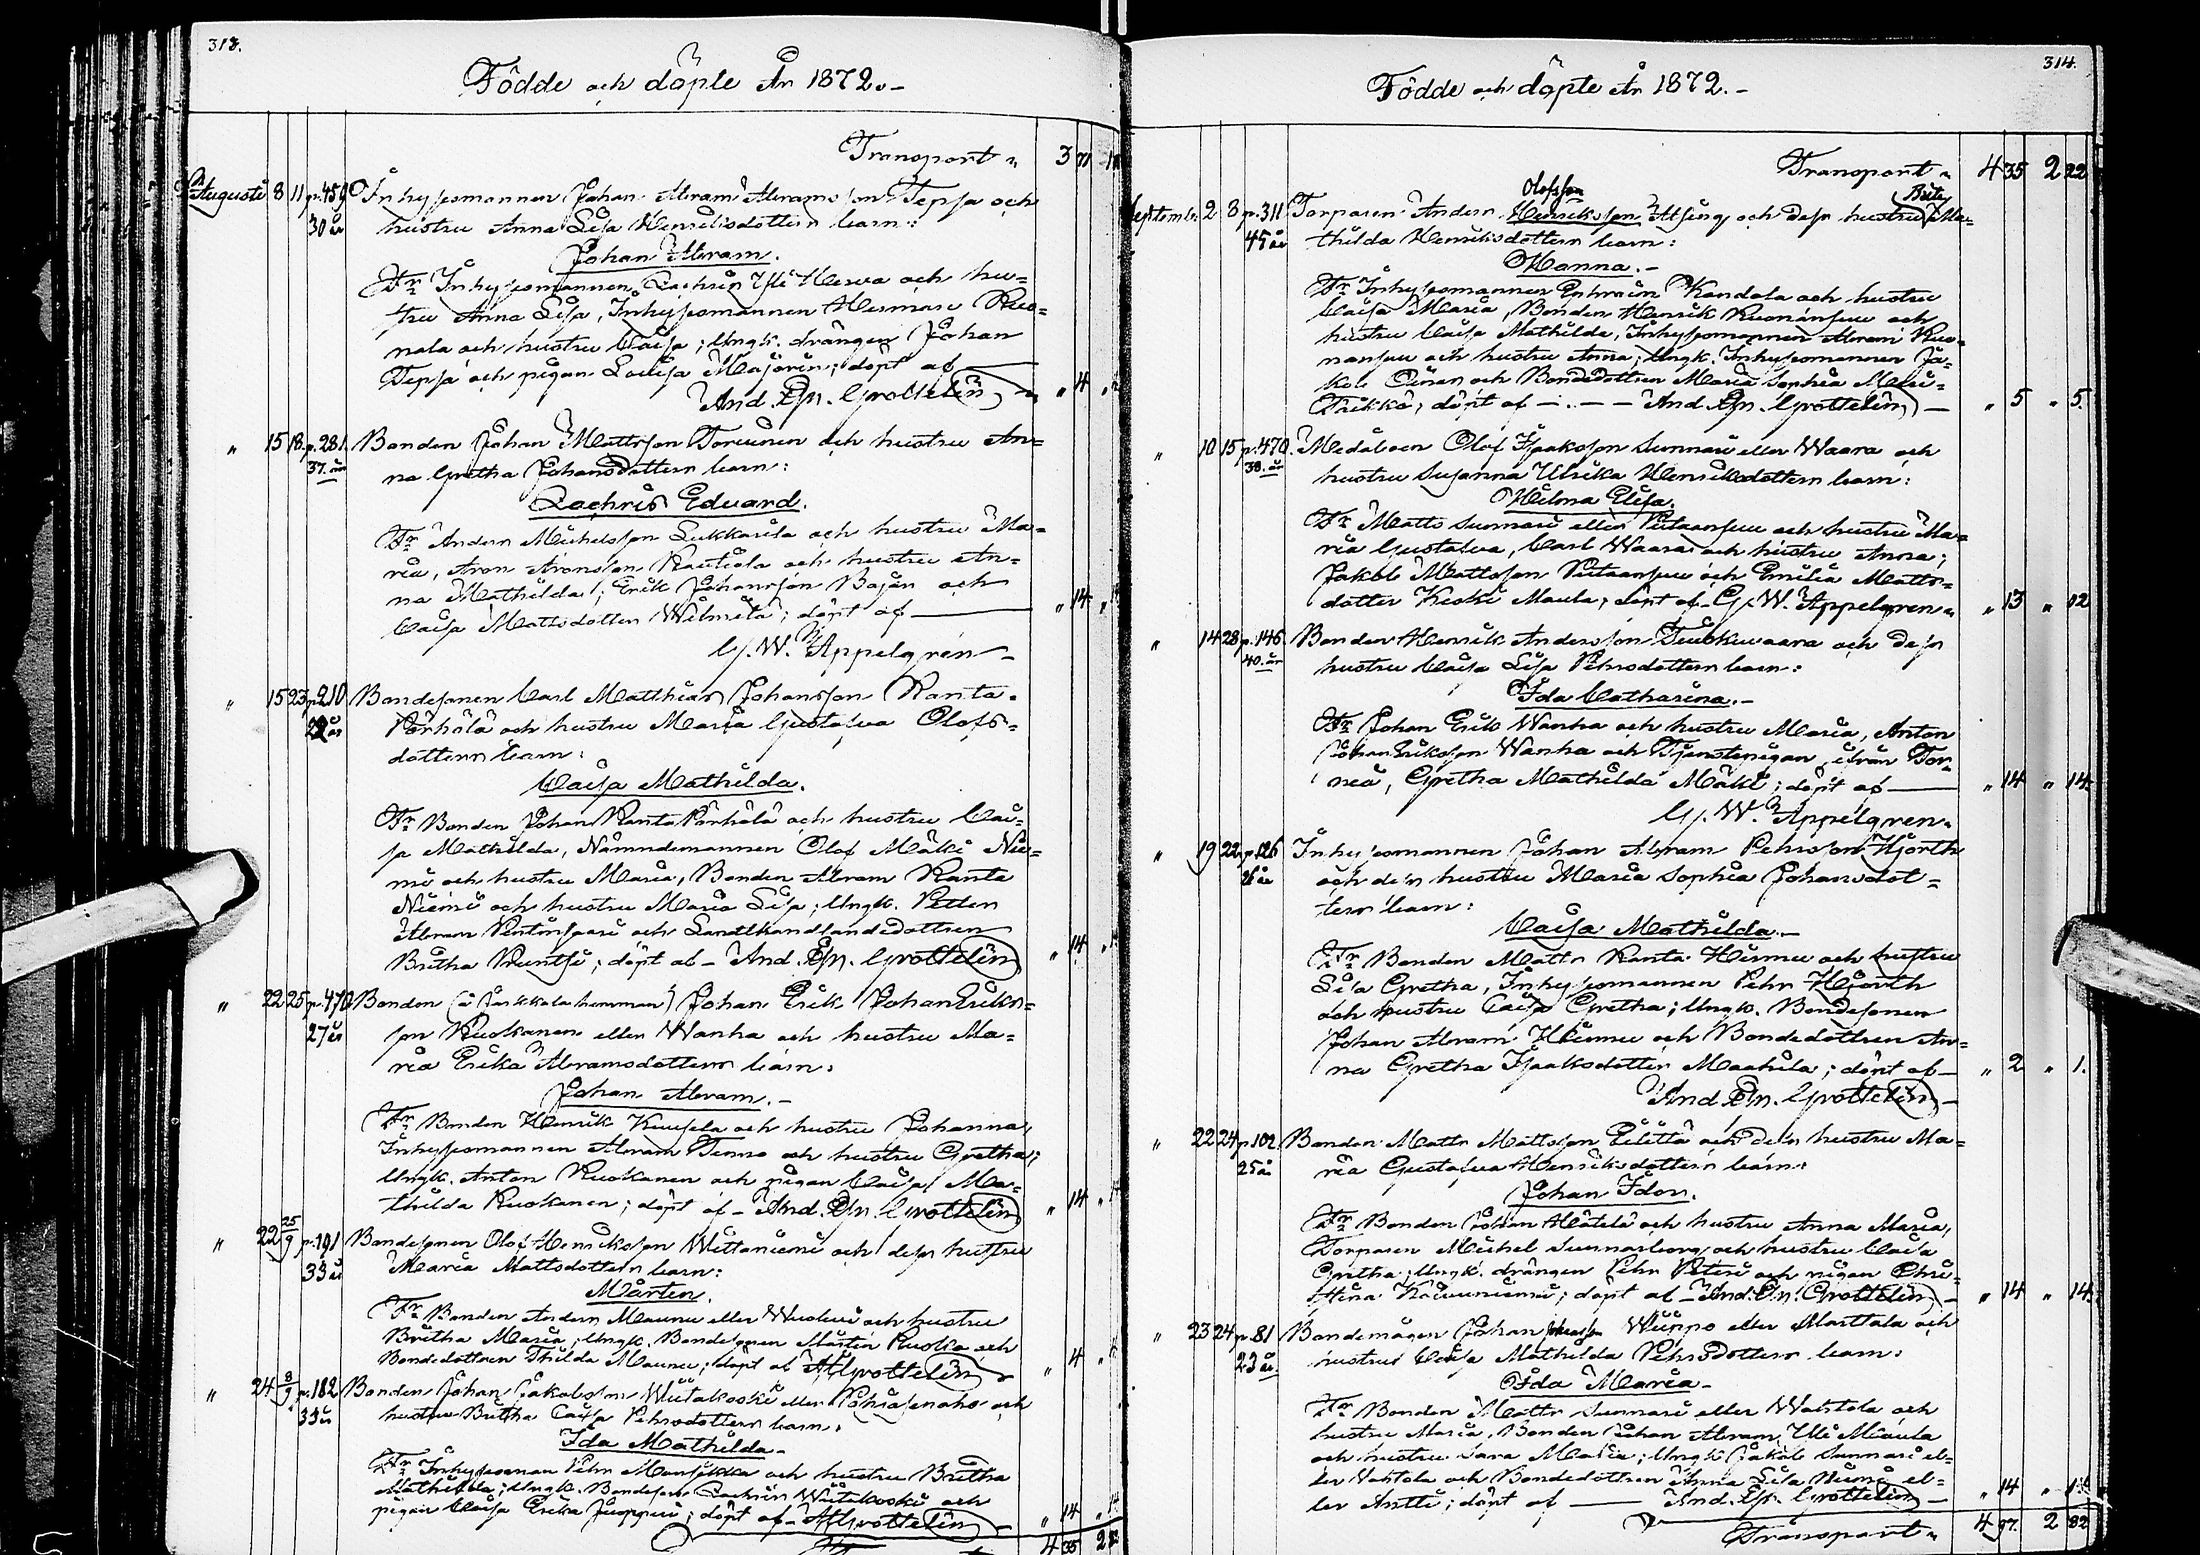 313.
Födde och döpte År 1872.-
Transport "
3 71
Augusti 8 11 p. 459 Inhysesmannen Johan Abram Abramsson Tepsa och
30 år hustru Anna Lisa Henriksdotters barn:
Johan Abram.
Fr Inhysesmannen Zachris Yli Herva och hu=
stru Anna Lisa, Inhysesmannen Herman Kuo=
nala och hustru Caisa; Ungk. drängen Johan
Tepsa och pigan Lovisa Majorin; döpt af
And. Grottelin " 4
" 15 18 p. 281. Bonden Johan Mattsson Torvinen och hustru An=
37 år na Gretha Johansdotters barn:
Zachris Eduard.
Fr Anders Michelsson Lukkarila och hustru Ma=
ria, Aron Aronsson Rautiola och hustru An=
na Mathilda; Erik Johansson Bajan och
Caisa Mattsdotter Wilmila; döpt af " 14
G. W. Appelgren
" 15 23 p. 210 Bondesonen Carl Matthias Johansson Ranta-
år Pörhölä och hustru Maria Gustafva Olofs=
dotters barn:
Caisa Mathilda.
Fr Bonden Johan Ranta Pörhölä och hustru Cai=
sa Mathilda, Nämndemannen Olof Mäki Nie=
mi och hustru Maria, Bonden Abram Ranta
Niemi och hustru Maria Lisa; Ungk. Petter
Abram och Landthandlandedottren
Britha; döpt af - And. Grottelin " 14
" 22 25 p. 470 Bonden (å hemman) Johan Erik Johan Eriks=
27 år son Ruokanen eller Wanha och hustru Ma=
ria Erika Abramsdotters barn:
Johan Abram. -
Fr Bonden Henrik Kuusela och hustru Johanna,
Inhysesmannen Abram Tenno och hustru Gretha;
Ungk. Anton Ruokanen och pigan Caisa Ma=
thilda Ruokanen; döpt af - And. Grottelin " 14
" 22 25/9 p. 191 Bondesonen Olof Henriksson Wittaniemi och dess hustru
33 år Maria Mattsdotters barn:
Mårten.
Fr Bonden Anders Maunu eller och hustru
Britha Maria; Ungk. Bondesonen Mårten Ruoka och
Bondedottren Thilda Maunu; döpt af A Grottelin " 4
" 24 8/9 p. 182 Bonden Johan Jakobsson Wiitakoski eller och
33 år hustru Britha Caisa Pehrsdotters barn:
Ida Mathilda -
Fr Inhysesman Pehr Mansikka och hustru Britha
Mathilda; Ungk. Bondeson Zachris Wiitakoski och
pigan Caisa Erika Juoppi; döpt af - A Grottelin " 14
4 35
314.
Födde och döpte År 1872. -
Transport " 4 35 2 22
Olofsson
Septemb. 2 8 p. 311 Torparen Anders Henriksson Alsing och dess hustru Brita Ma=
45 år thilda Henriksdotters barn:
Hanna. -
Fr Inhysesmannen Ephraim Kandola och hustru
Caisa Maria, Bonden Henrik Kuonansuu och
hustru Caisa Mathilda, Inhysesmannen Abram Kuo=
nansuu och hustru Anna; Ungk. Inhysesmannen Ja=
kob Oinas och Bondedottren Maria Sophia Meri=
Trikka; döpt af - And. Grottelin - " 5 " 5.
" 10 15 p. 470. Medåboen Olof Isaksson Sunnari eller Waara och
38. år hustru Susanna Ulrika Henriksdotters barn:
Hilma Elisa.
Fr Matts Sunnari eller Viitaansuu och hustru Ma=
ria Gustafva, Carl Waara och hustru Anna;
Jakob Mattsson Viitaansuu och Emilia Matts=
dotter Keski Maula; döpt af - G. W. Appelgren " 13 " 12
" 14 28 p. 146. Bonden Henrik Andersson Tuiskuvaara och dess
40. år hustru Caisa Lisa Pehrsdotters barn:
Ida Catharina. -
Fr Johan Erik Wanha och hustru Maria, Anton
Johan Eriksson Wanha och Tjenstepigan ifrån Tor=
neå, Gretha Mathilda Mäki; döpt af " 14 " 14.
G. W. Appelgren
" 19 22 p. 126 Inhysesmannen Johan Abram Pehrsson Hjorth
år och dess hustru Maria Sophia Johansdot=
ters barn:
Caisa Mathilda. -
Fr Bonden Matts Ranta Heimu och hustru
Lisa Gretha, Inhysesmannen Pehr Hjorth
och hustru Caisa Gretha; Ungk. Bondesonen
Johan Abram Heimu och Bondedottren An=
na Gretha Isaksdotter Maahila; döpt af - " 2 " 1.
And. Grottelin -
" 22 24 p. 102 Bonden Matts Mattsson Eilittä och dess hustru Ma=
25 år ria Gustafva Henriksdotters barn:
Johan Idor.
Fr Bonden Johan Hätälä och hustru Anna Maria,
Torparen Michel Sunnarborg och hustru Caisa
Gretha; Ungk. drängen Pehr Peteri och pigan Chri=
stina; döpt af - And. Grottelin - " 14 " 14.
" 23 24 p. 81 Bondemågen Johan Johansson Wiippo eller Marttala och
23 år. hustrus Caisa Mathilda Pehrsdotters barn:
Ida Maria -
Fr Bonden Matts Sunnari eller Wahtola och
hustru Maria, Bonden Johan Abram Yli Maula
och hustru Sara Maria; Ungk. Jakob Sunnari el=
ler Wahtola och Bondedottren Anna Lisa Niemi el=
ler Antti; döpt af And. Grottelin - " 14 " 14
Transport " 4 97. 2 82